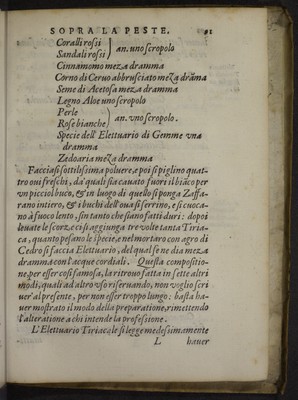 SOPRA LA PESTE. 81
Coralli rossi
Sandali rossi } an. uno scropolo
Cinnamomo meza dramma
Corno di Ceruo abbrusciato meza drāma
Seme di Acetosa meza dramma
Legno Aloe uno scropolo
Perle
Rose bianche } an. vno scropolo.
Specie dell' Elettuario di Gemme vna
dramma
Zedoaria meza dramma
Facciasi sottilissima poluere, e poi si piglino quat-
tro oui freschi, da' quali sia cauato fuori il biāco per
vn picciol buco, & in luogo di quello si ponga Zaffa-
rano intiero, & i buchi dell'oua si serrino, e si cuoca-
no à fuoco lento, sin tanto che siano fatti duri: dopoi
leuate le scorze, e ci si aggiunga tre volte tanta Tiria-
ca, quanto pesano le specie, e nel mortaro con agro di
Cedro si faccia Elettuario, del qual se ne dia meza
dramma con l'acque cordiali. Questa compositio-
ne per esser cosi famosa, la ritrouo fatta in sette altri
modi, quali ad altro vso riseruando, non voglio scri
uer' al presente, per non esser troppo lungo: basta ha-
uer mostrato il modo della preparatione, rimettendo
l'alteratione a chi intende la professione.
L'Elettuario Tiriacale si legge medesimamente
L hauer